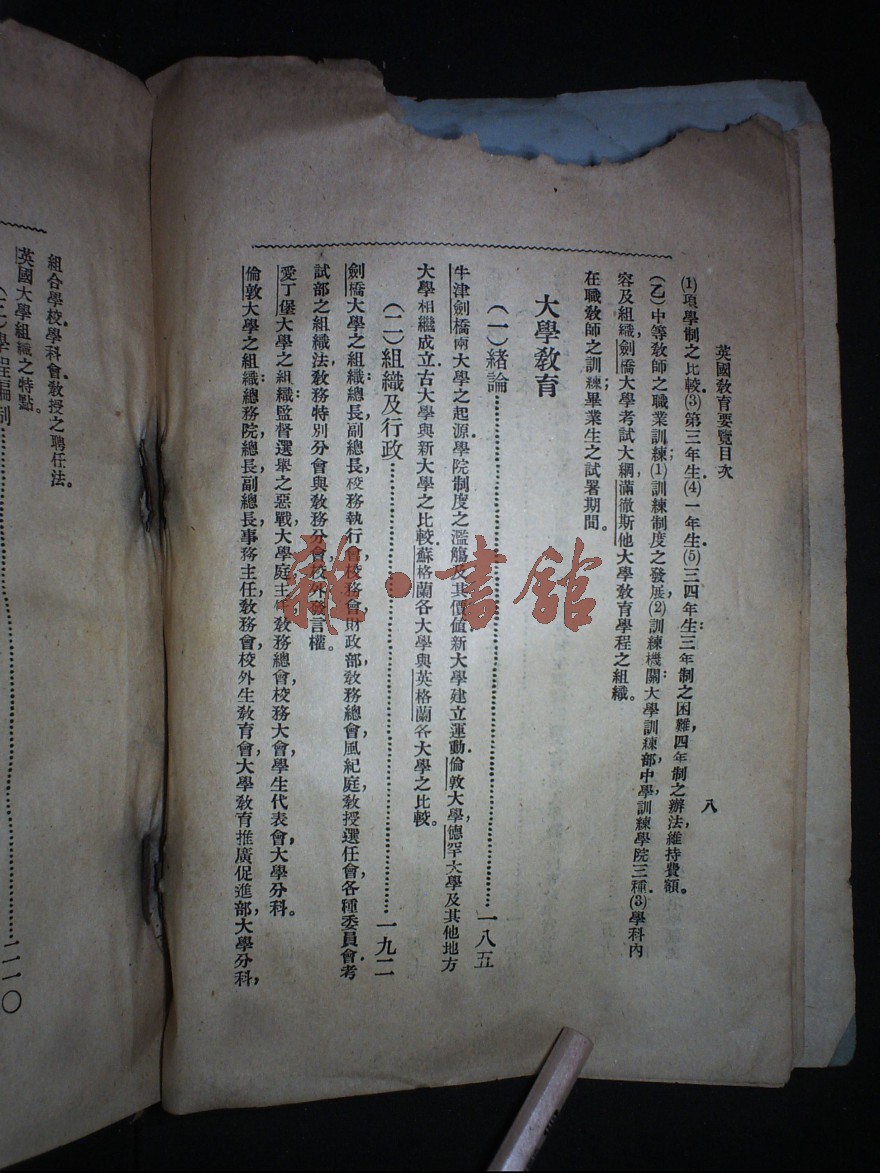 英國敎育要覽目次
八
(1)項學制之比較(3)第三年生(4)一年生(5)三四年生:三年制之困難,四年制之辦法,維持費額。
(乙)中等敎師之職業訓練;(1)訓練制度之發展,(2)訓練機關:大學訓練部,中學訓練學院三種.(3)學科內
容及組織,劍橋大學考試大綱,滿徹斯他大學敎育學程之組織。
在職敎師之訓練;畢業生之試署期間。
大學敎育
(一)緒論……一八五
牛津劍橋兩大學之起源.學院制度之濫觴及其價値.新大學建立運動.倫敦大學,德罕大學及其他地方
大學相繼成立.古大學與新大學之比較.蘇格蘭各大學與英格蘭各大學之比較。
(二)組織及行政……一九二
劍橋大學之組織:總長,副總長,校務執行會,校務會,財政部,敎務總會,風紀庭,敎授選任會,各種委員會.考
試部之組織法,敎務特別分會與敎務分會,校外發言權。
愛丁堡大學之組織:監督選舉之惡戰,大學庭主任,敎務總會,校務大會,學生代表會,大學分科。
倫敦大學之組織:總務院,總長,副總長,事務主任,敎務會,校外生敎育會,大學敎育推廣促進部,大學分科,
組合學校,學科會.敎授之聘任法。
英國大學組織之特點。
(三)學程編制……二一〇
雜·書館